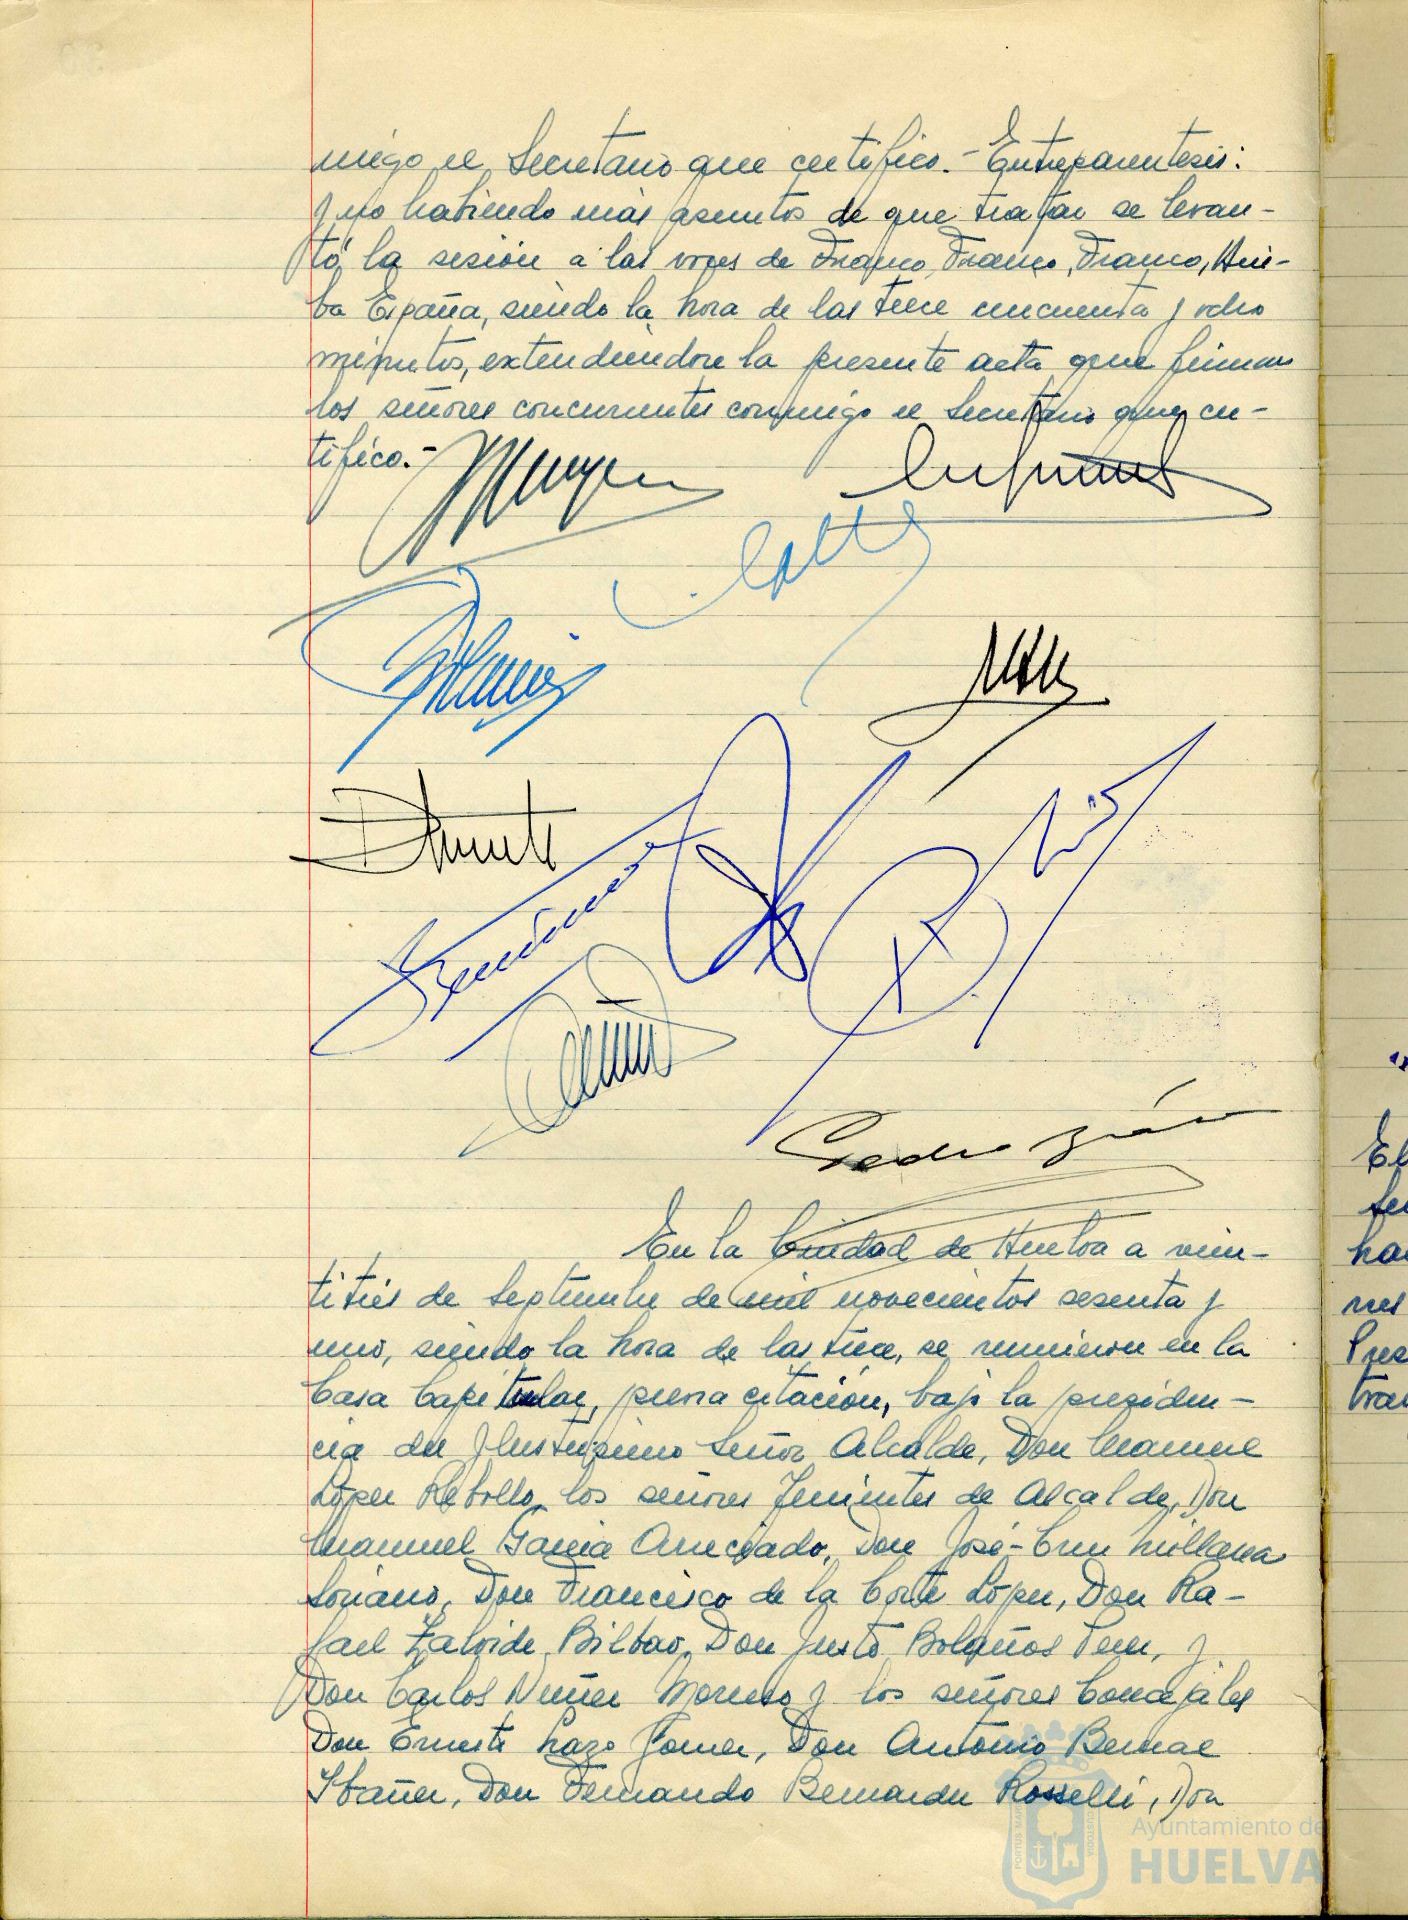 migo el Secretario que certifico.- Entreparentesis:
y no habiendo más asuntos de que tratar se levan-
tó la sesión a las voces de Franco, Franco, Franco, Arri-
ba España, siendo la hora de las trece cincuenta y ocho
minutos, extendiéndose la presente acta que firman
los señores concurrentes conmigo el Secretario que cer-
tifico.-
Pedro
En la Ciudad de Huelva a vein-
titrés de Septiembre de mil novecientos sesenta y
uno, siendo la hora de las trece, se reunieron en la
Casa Capitular, previa citación, bajo la presiden-
cia del Ilustrísimo Señor Alcalde, Don Manuel
López Rebollo, los señores Tenientes de Alcalde, Don
Manuel García Arreciado, Don José-Cruz Millana
Soriano, Don Francisco de la Corte López, Don Ra-
fael Zalvide Bilbao, Don Justo Bolaños Pern, y
Don Carlos Núñez Moreno y los señores Concejales
Don Ernesto Lazo Gómez, Don Antonio Bernal
Ibáñez, Don Fernando Bernárdez Rosselli, Don
Ayuntamiento de
HUELVA
El
ha
Pres